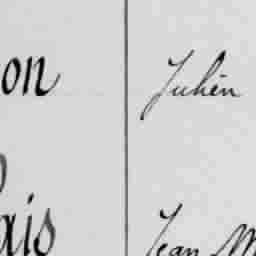 on Julien
ais Jean M